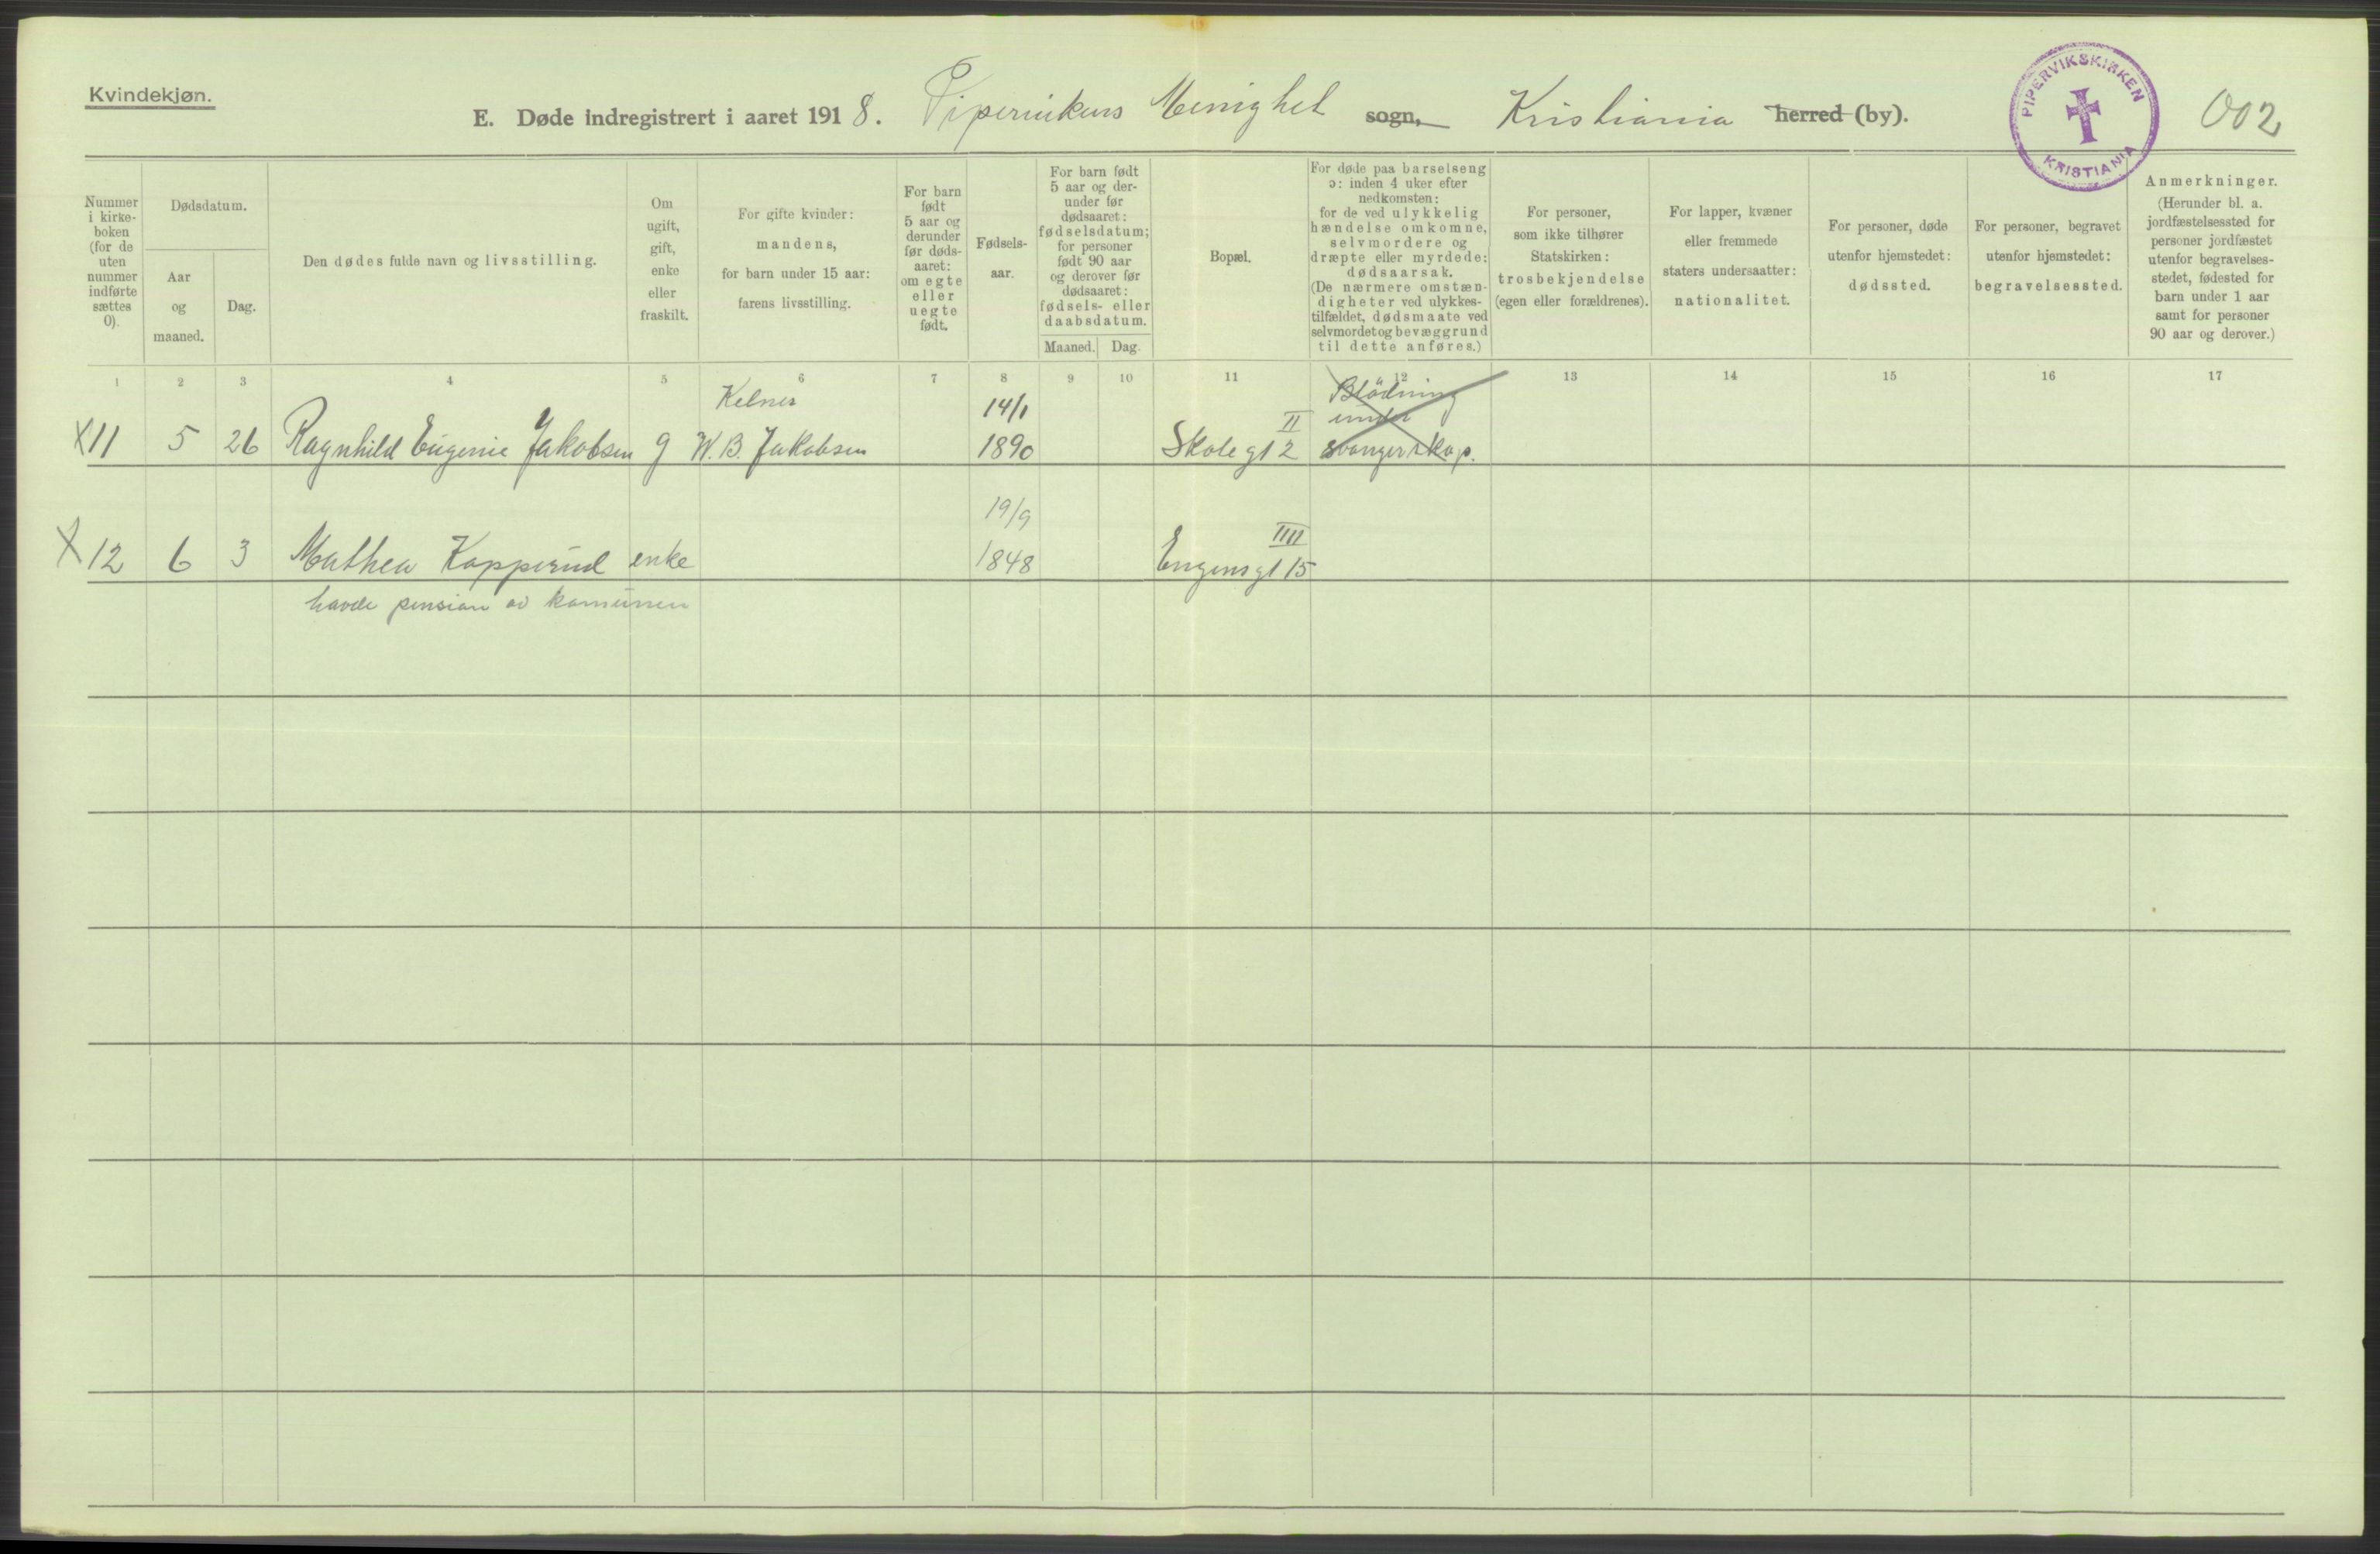 Kvindekjøn.
E. Døde indregistrert i aaret 1918. Piperviken's Menighet sogn, Kristiania herred (by).
PIPERVIKSKIRKEN
KRISTIANIA
002
Nummer
i kirke-
boken
(for de
uten
nummer
indførte
sættes
0).
Dødsdatum.
Aar
og
maaned.
Dag.
Den dødes fulde navn og livsstilling.
Om
ugift,
gift,
enke
eller
fraskilt.
For gifte kvinder:
mandens,
for barn under 15 aar:
farens livsstilling.
For barn
født
5 aar og
derunder
før døds-
aaret:
om egte
eller
uegte
født.
Fødsels-
aar.
For barn født
5 aar og der-
under før
dødsaaret:
fødselsdatum;
for personer
født 90 aar
og derover før
dødsaaret:
fødsels- eller
daabsdatum.
Maaned. Dag.
Bopæl.
For døde paa barselseng
ɔ: inden 4 uker efter
nedkomsten:
for de ved ulykkelig
hændelse omkomne,
selvmordere og
dræpte eller myrdede:
dødsaarsak.
(De nærmere omstæn-
digheter ved ulykkes-
tilfældet, dødsmaate ved
selvmordet og bevæggrund
til dette anføres.)
For personer,
som ikke tilhører
Statskirken:
trosbekjendelse
(egen eller forældrenes).
For lapper, kvæner
eller fremmede
staters undersaatter:
nationalitet.
For personer, døde
utenfor hjemstedet:
dødssted.
For personer, begravet
utenfor hjemstedet:
begravelsessted.
Anmerkninger.
(Herunder bl. a.
jordfæstelsessted for
personer jordfæstet
utenfor begravelses-
stedet, fødested for
barn under 1 aar
samt for personer
90 aar og derover.)
1 2 3 4 5 6 7 8 9 10 11 12 13 14 15 16 17
Kelner 14/1 Blödning
II under
X11 5 26 Ragnhild Eugenie Jakobsen g W. B. Jakobsen 1890 Skolegt 2 svangerskap.
19/9
IIII
X 12 6 3 Mathea Kopperud enke 1848 Engensgt 15
havde pension av komunen